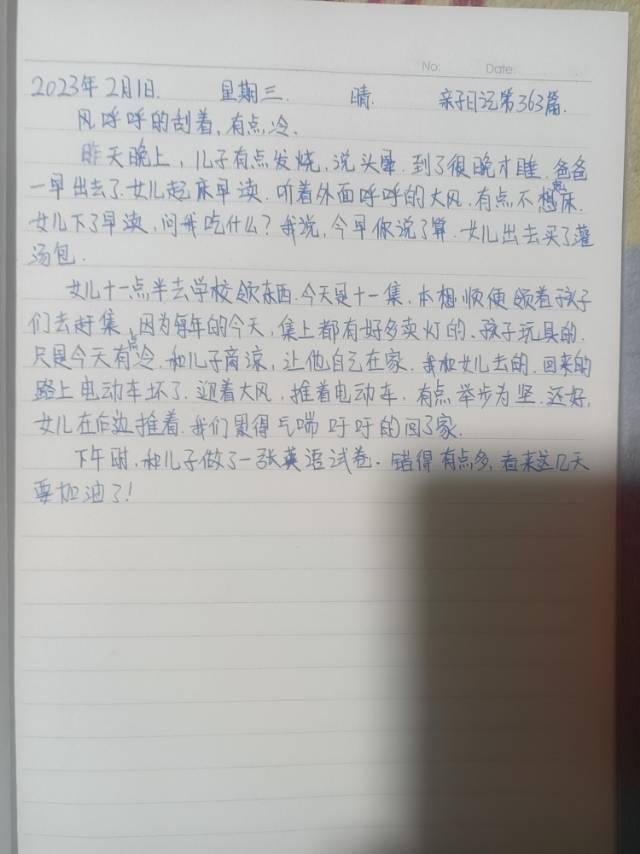 No: Date:
2023年2月1日. 星期三. 晴. 亲子日记第363篇.
风呼呼的刮着,有点冷.
昨天晚上,儿子有点发烧,说头晕.到了很晚才睡.爸爸
一早出去了.女儿起床早读.听着外面呼呼的大风.有点不想起床.
女儿下了早读,问我吃什么?我说,今早你说了算.女儿出去买了灌
汤包.
女儿十一点半去学校领东西.今天是十一集.本想顺便领着孩子
们去赶集,因为每年的今天,集上都有好多卖灯的、孩子玩具的.
只是今天有点冷.和儿子商凉,让他自己在家.我和女儿去的.回来的
路上电动车坏了.迎着大风,推着电动车.有点举步为坚.还好,
女儿在后边推着.我们累得气喘吁吁的回了家.
下午时,和儿子做了一张英语试卷.错得有点多,看来这几天
要加油了!